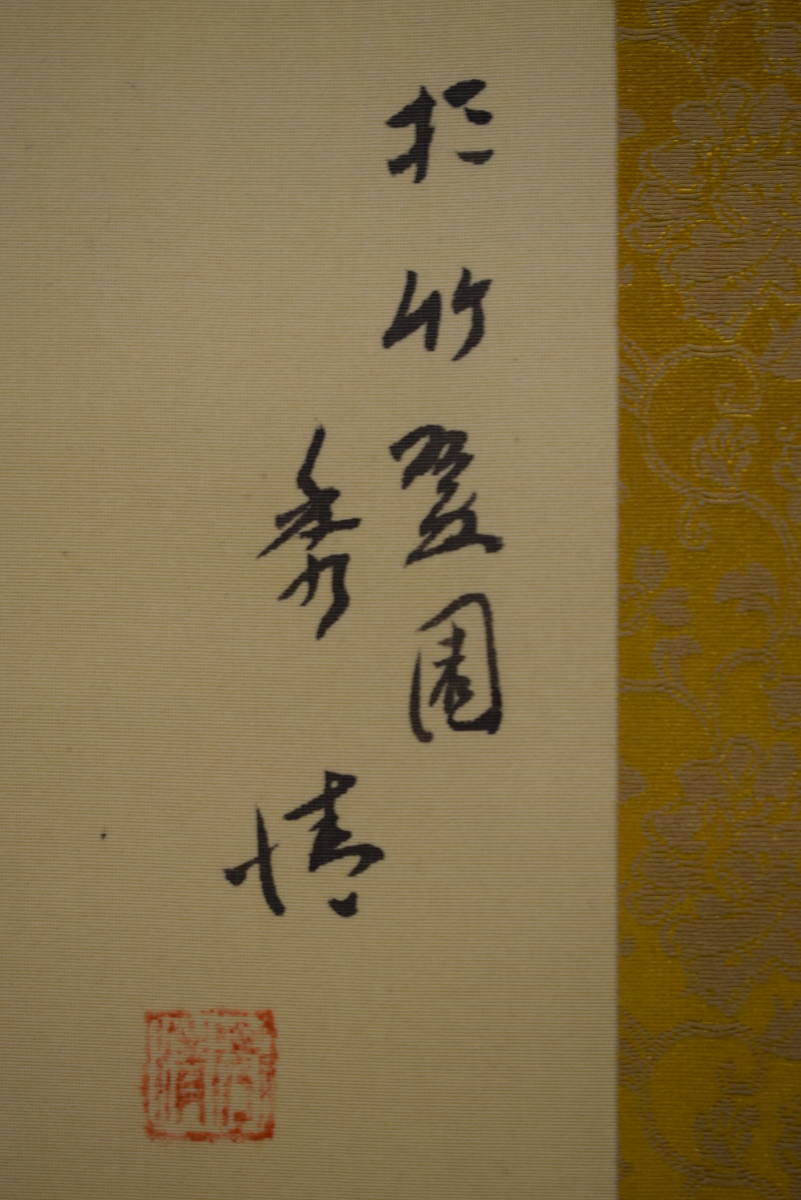 於竹葭園
秀情